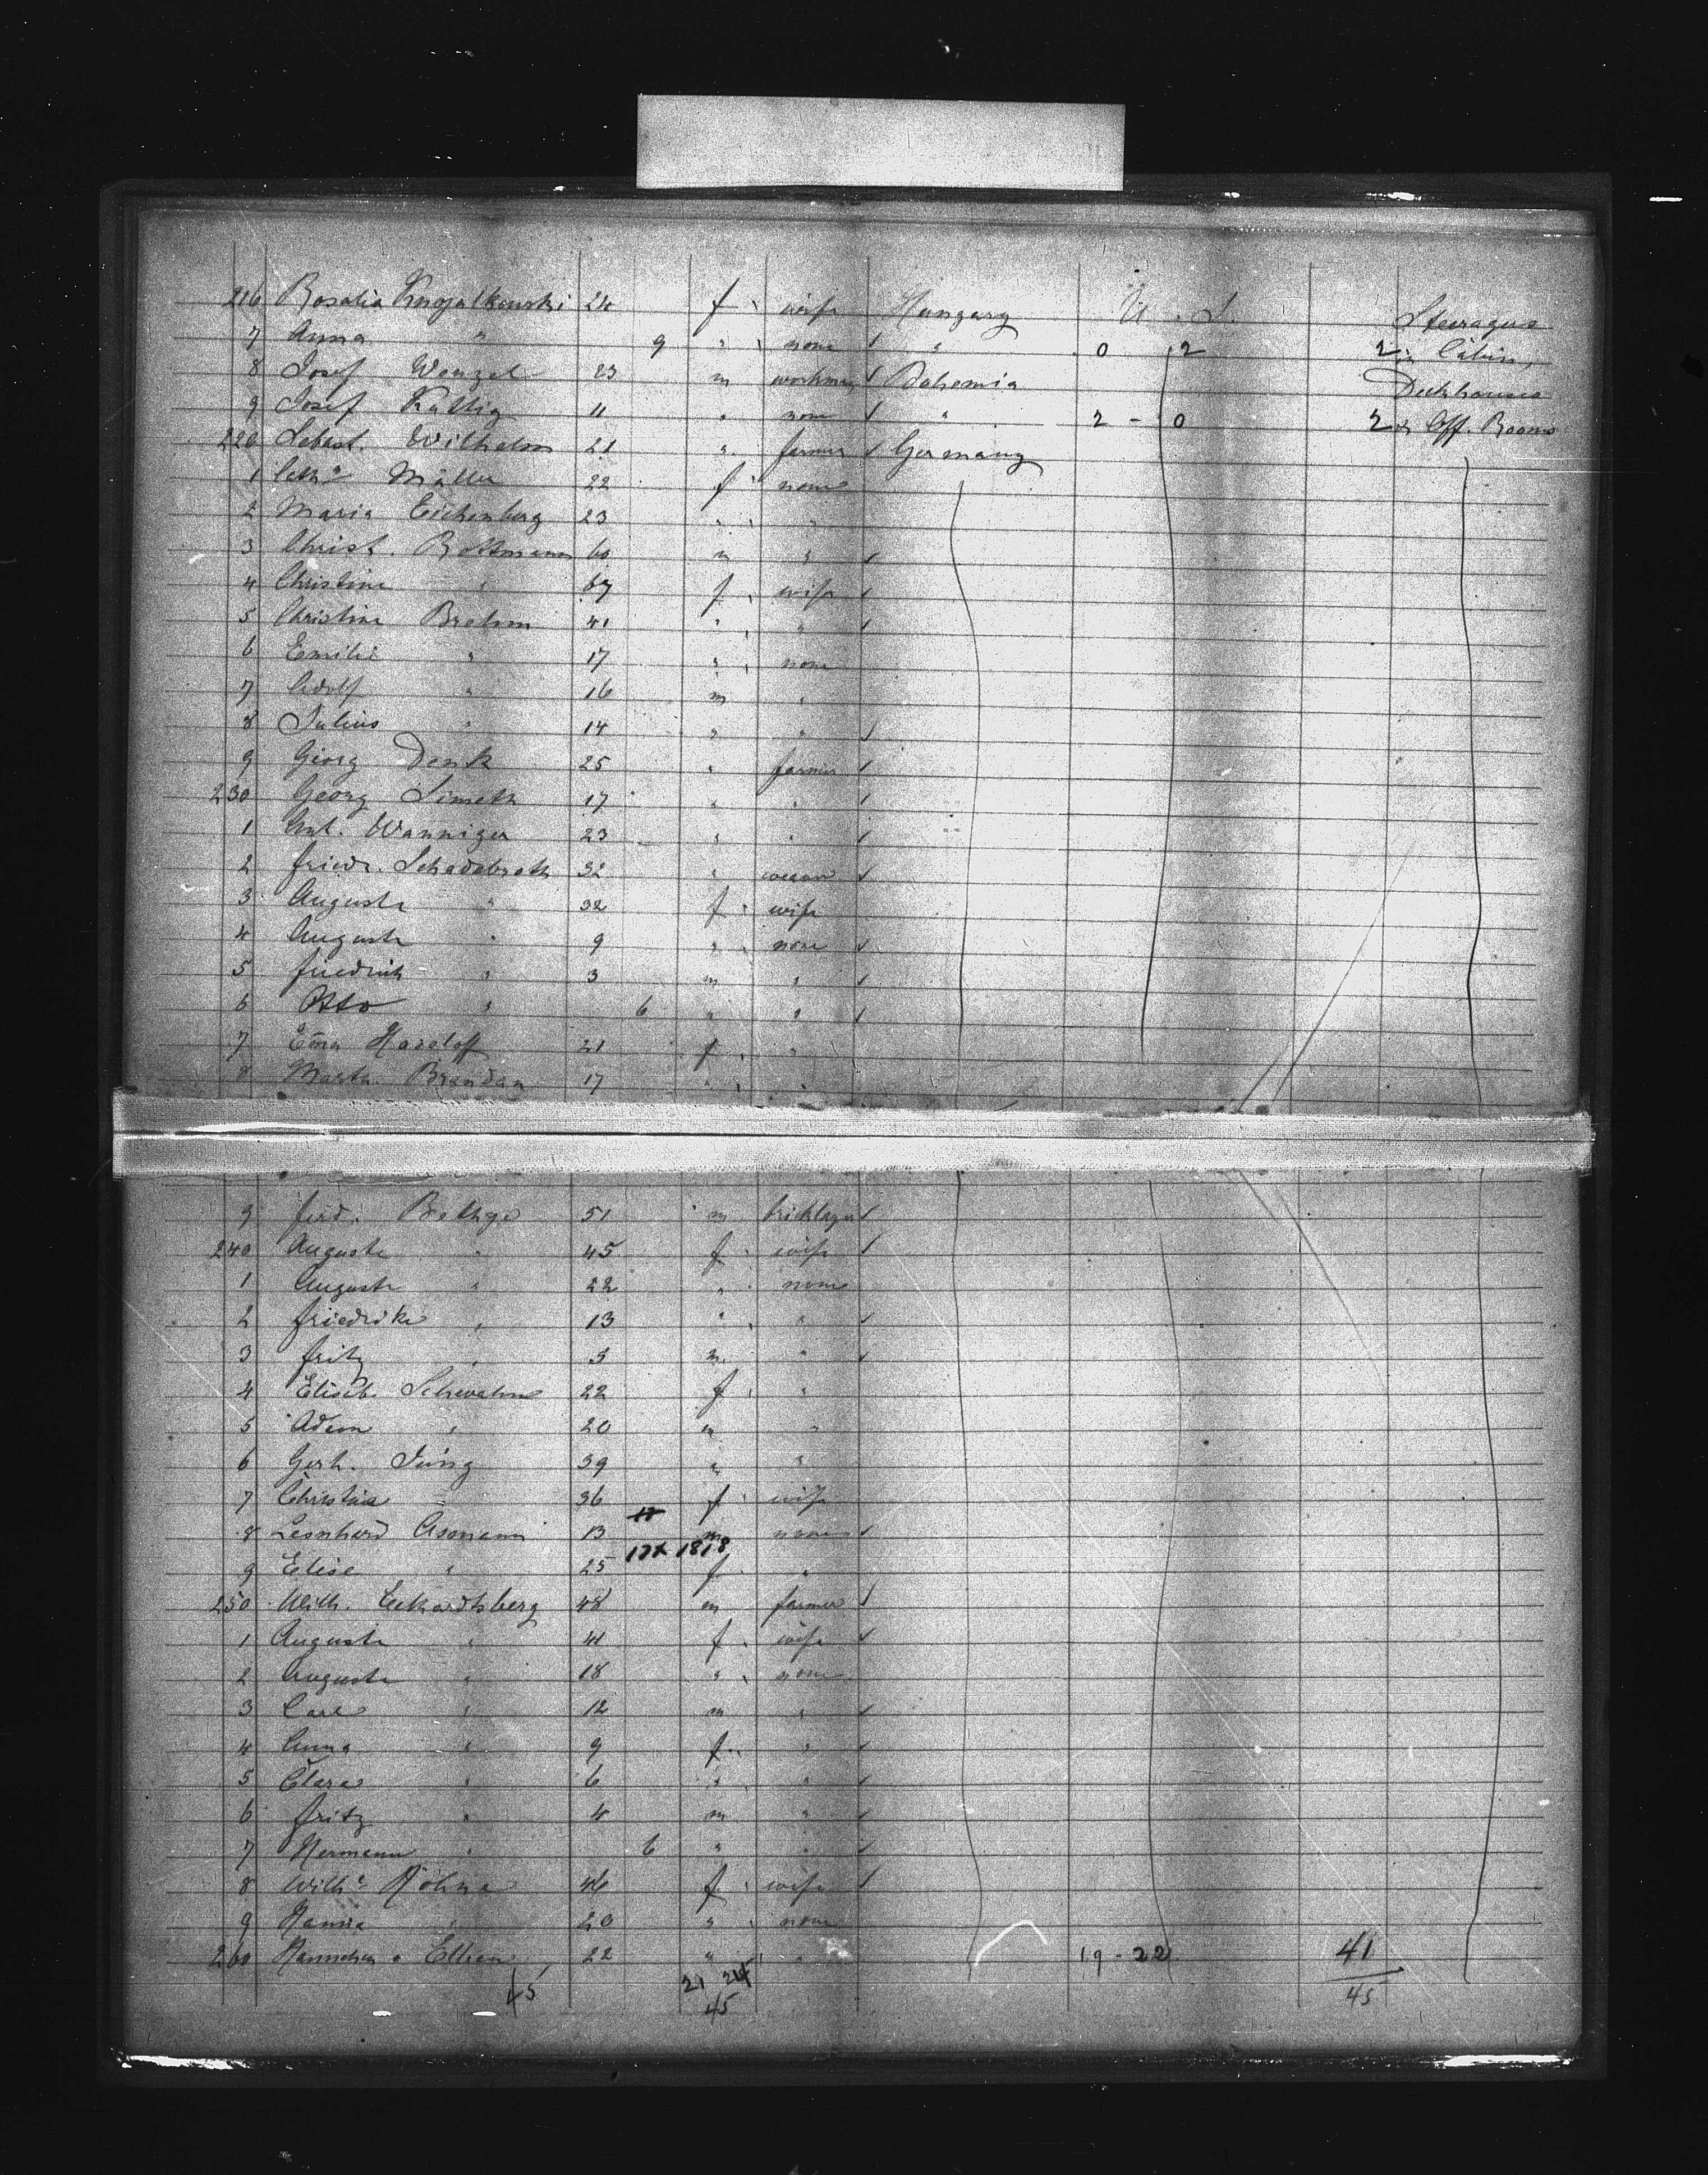 216 Rosalia 24 f wife Hungary U. S. Steerages
7 Anna " 9 " none " 0 2 2 in Cabin,
8 Josef Wenzel 23 m workman Bohemia Deckhouses
9 Josef Kattig 11 " none " 2 - 0 2 & Off. Rooms
220 Sebast. Wilhelm 21 " farmer Germany
1 Cath.ª Müller 22 f none
2 Maria Eichenberg 23 " "
3 Christ. Rottmann 60 m "
4 Christine " 67 f wife
5 Christine Brehm 41 " "
6 Emilie " 17 " none
7 Adolf " 16 m "
8 Julius " 14 " "
9 Georg Denk 25 " farmer
230 Georg Simeth 17 " "
1 Ant. Wanniger 23 " "
2 Friedr. Schadebroth 32 " weaver
3 Auguste " 32 f wife
4 Auguste " 9 " none
5 Friedrich " 3 m "
6 Otto " 6 " "
7 Em̄a Haseloff 21 f "
8 Martha Brandau 17 " "
9 Ferd. Bethge 51 m bricklayer
240 Auguste " 45 f wife
1 Auguste " 22 " none
2 Friedrike " 13 " "
3 Fritz " 5 m "
4 Elisab. Schwalm 22 f "
5 Adam " 20 m "
6 Gerh. Jung 39 " "
7 Christine " 36 f wife
8 Leonhard Asmann 13 m none
9 Elise " 25 f "
250 Wilh. Eckardtsberg 48 m farmer
1 Auguste " 41 f wife
2 Auguste " 18 " none
3 Carl " 12 m "
4 Anna " 9 f "
5 Clara " 6 " "
6 Fritz " 4 m "
7 Hermann " 6 " "
8 Wilh.ª Köhne 46 f wife
9 Hanna " 20 " none
260 Hannchen 22 " " 19 - 22 41
45 21 24 45
45